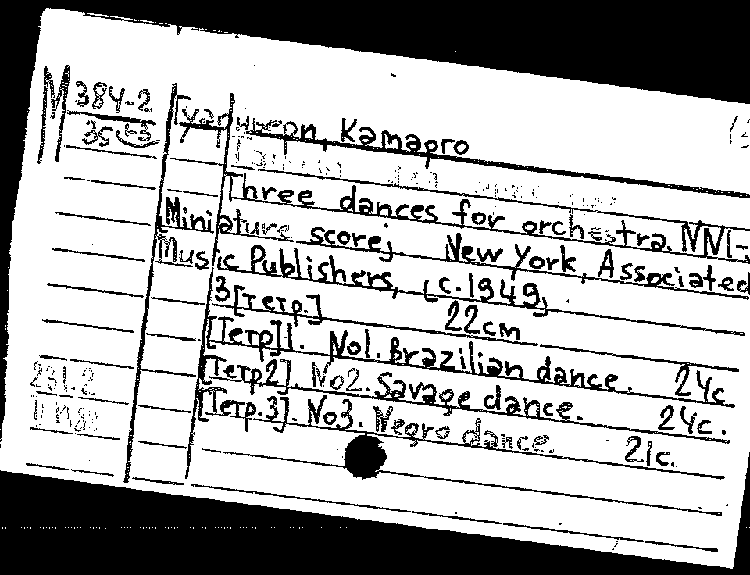 M 384-2
35 -3
Гуарниери, Камарго
Three dances for orchestra. NNI-
Miniature score; New York, Associated
Music Publishers, [c.1949]
3[тетр.] 22cm
[Тетр]1. No1. Brazilian dance. 24c
[Тетр2]. No2. Savage dance. 24c.
[Тетр.3]. No3. Negro dance. 21c.
231.2